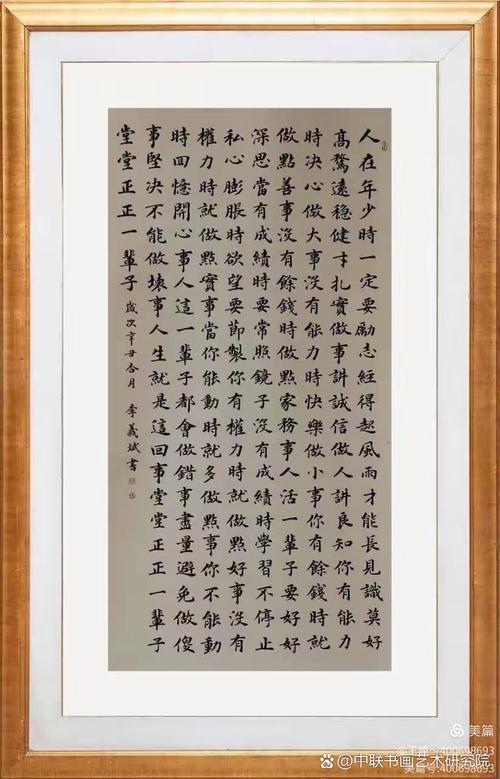 人在年少時一定要勵志經得起風雨才能長見識莫好
高騖遠穩健扎實做事訲誠信做人訲良知你有能力
時決心做大事沒有能力時快樂做小事你有餘錢時就
做點善事沒有餘錢時做點家務事人活一輩子要好好
深思當有成績時要常照鏡子沒有成績時學習不停止
私心膨脹時欲望要節製你有權力時就做點好事沒有
權力時就做點實事當你能動時就多做點事你不能動
時回憶開心事人這一輩子都會做錯事盡量避免做傻
事堅決不能做壞事人生就是這回事堂堂正正一輩子
堂堂正正一輩子 歲次辛丑合月 李義斌書
美篇
美篇号:400698693
@中联书画艺术研究院